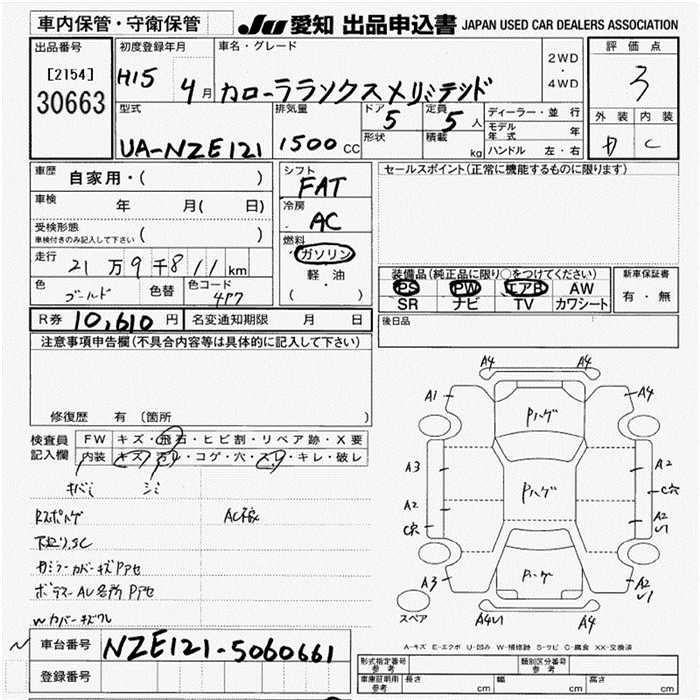 車内保管・守衛保管
JU 愛知 出品申込書 JAPAN USED CAR DEALERS ASSOCIATION
出品番号
[2154]
30663
初度登録年月
H15 4月
車名・グレード
カローラランクスXリミテッド
2WD
・
4WD
評価点
3
外装 内装
D C
型式
UA-NZE121
排気量
1500 CC
ドア
5
形状
定員
5 人
積載
kg
ディーラー・並行
モデル年式 年
ハンドル 左・右
車歴
自家用・( )
車検
年 月( 日)
受検形態
車検付きのみ記入して下さい ( )
走行
21万9千811km
色
ゴールド
色替
色コード
4P7
R券 10,610円
名変通知期限 月 日
シフト
FAT
冷房
AC
燃料
ガソリン
軽油
( ・ )
セールスポイント(正常に機能するものに限ります)
装備品(純正品に限り○をつけてください)
PS PW エアB AW
SR ナビ TV カワシート
新車保証書
有・無
後日品
注意事項申告欄(不具合内容等は具体的に記入して下さい)
修復歴 有 (箇所 )
検査員記入欄
FW キズ・飛石・ヒビ割・リペア跡・X要
内装 キズ・汚レ・コゲ・穴・スレ・キレ・破レ
キバミ シミ
AC
Wカバーキズワレ
車台番号 NZE121-5060661
登録番号
A4 A4
A1 A4
Pハゲ
A3 A2
Pハゲ C穴
A2 A2
C穴 U1
Pハゲ
A3 A2
U1
スペア
A4U1 A4
A-キズ E-エクボ U-凹み W-補修跡 S-サビ C-腐食 XX-交換済
形式指定番号
参考
類別区分番号
参考
車庫証明用
参考
長さ cm 幅 cm 高さ cm